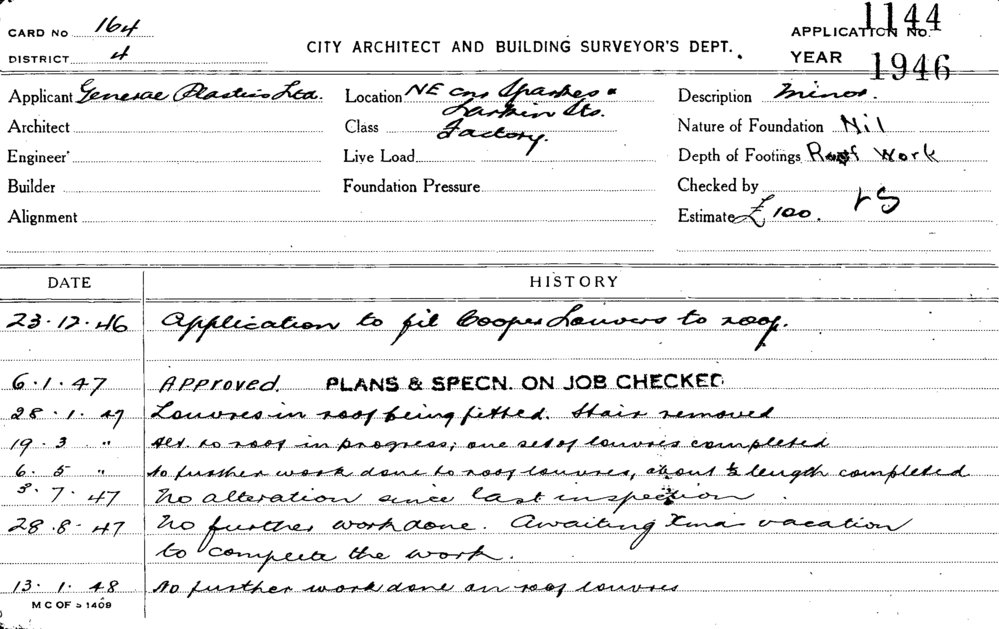 CARD NO 164
DISTRICT 4
CITY ARCHITECT AND BUILDING SURVEYOR'S DEPT.
APPLICATION NO. 1144
YEAR 1946
Applicant General Plastics Ltd.
Architect
Engineer
Builder
Alignment
Location NE cnr Sparkes &
Larkin Sts.
Class Factory.
Live Load
Foundation Pressure
Description Minor.
Nature of Foundation Nil
Depth of Footings Roof Work
Checked by
Estimate £100.
DATE HISTORY
23.12.46 Application to fit Cooper Louvers to roof.
6.1.47 Approved. PLANS & SPECN. ON JOB CHECKED
28.1.47 Louvres in roof being fitted. Stair removed
19.3 " Alt. to roof in progress; one set of louvres completed
6.5 " No further work done to roof louvres, about ½ length completed
3.7.47 No alteration since last inspection.
28.8.47 No further work done. Awaiting Xmas vacation
to complete the work.
13.1.48 No further work done on roof louvres
M C OF S 1409